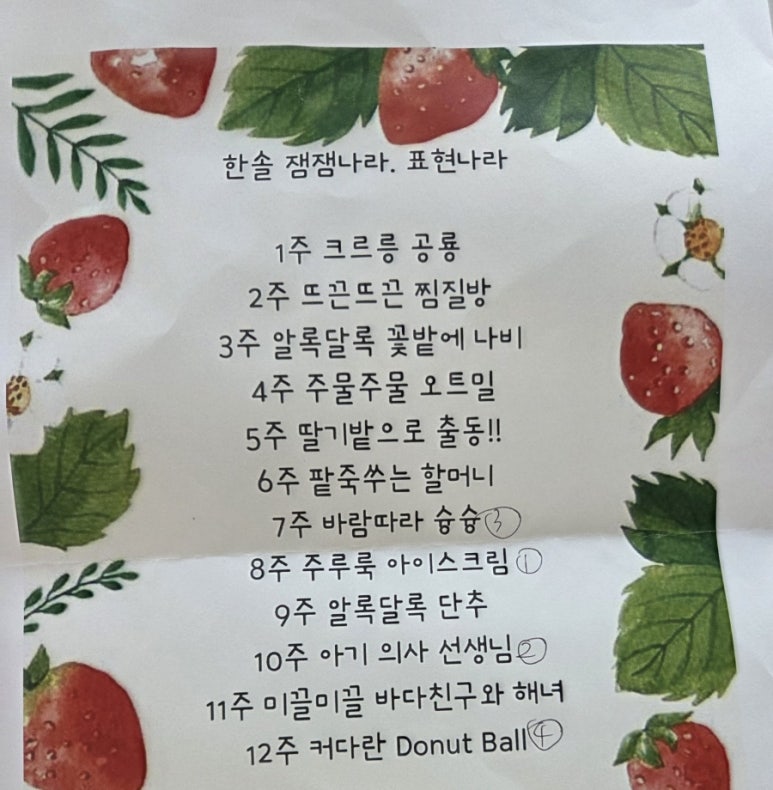 한솔 잼잼나라. 표현나라
1주 크르릉 공룡
2주 뜨끈뜨끈 찜질방
3주 알록달록 꽃밭에 나비
4주 주물주물 오트밀
5주 딸기밭으로 출동!!
6주 팥죽쑤는 할머니
7주 바람따라 슝슝 ③
8주 주루룩 아이스크림 ①
9주 알록달록 단추
10주 아기 의사 선생님 ②
11주 미끌미끌 바다친구와 해녀
12주 커다란 Donut Ball ④